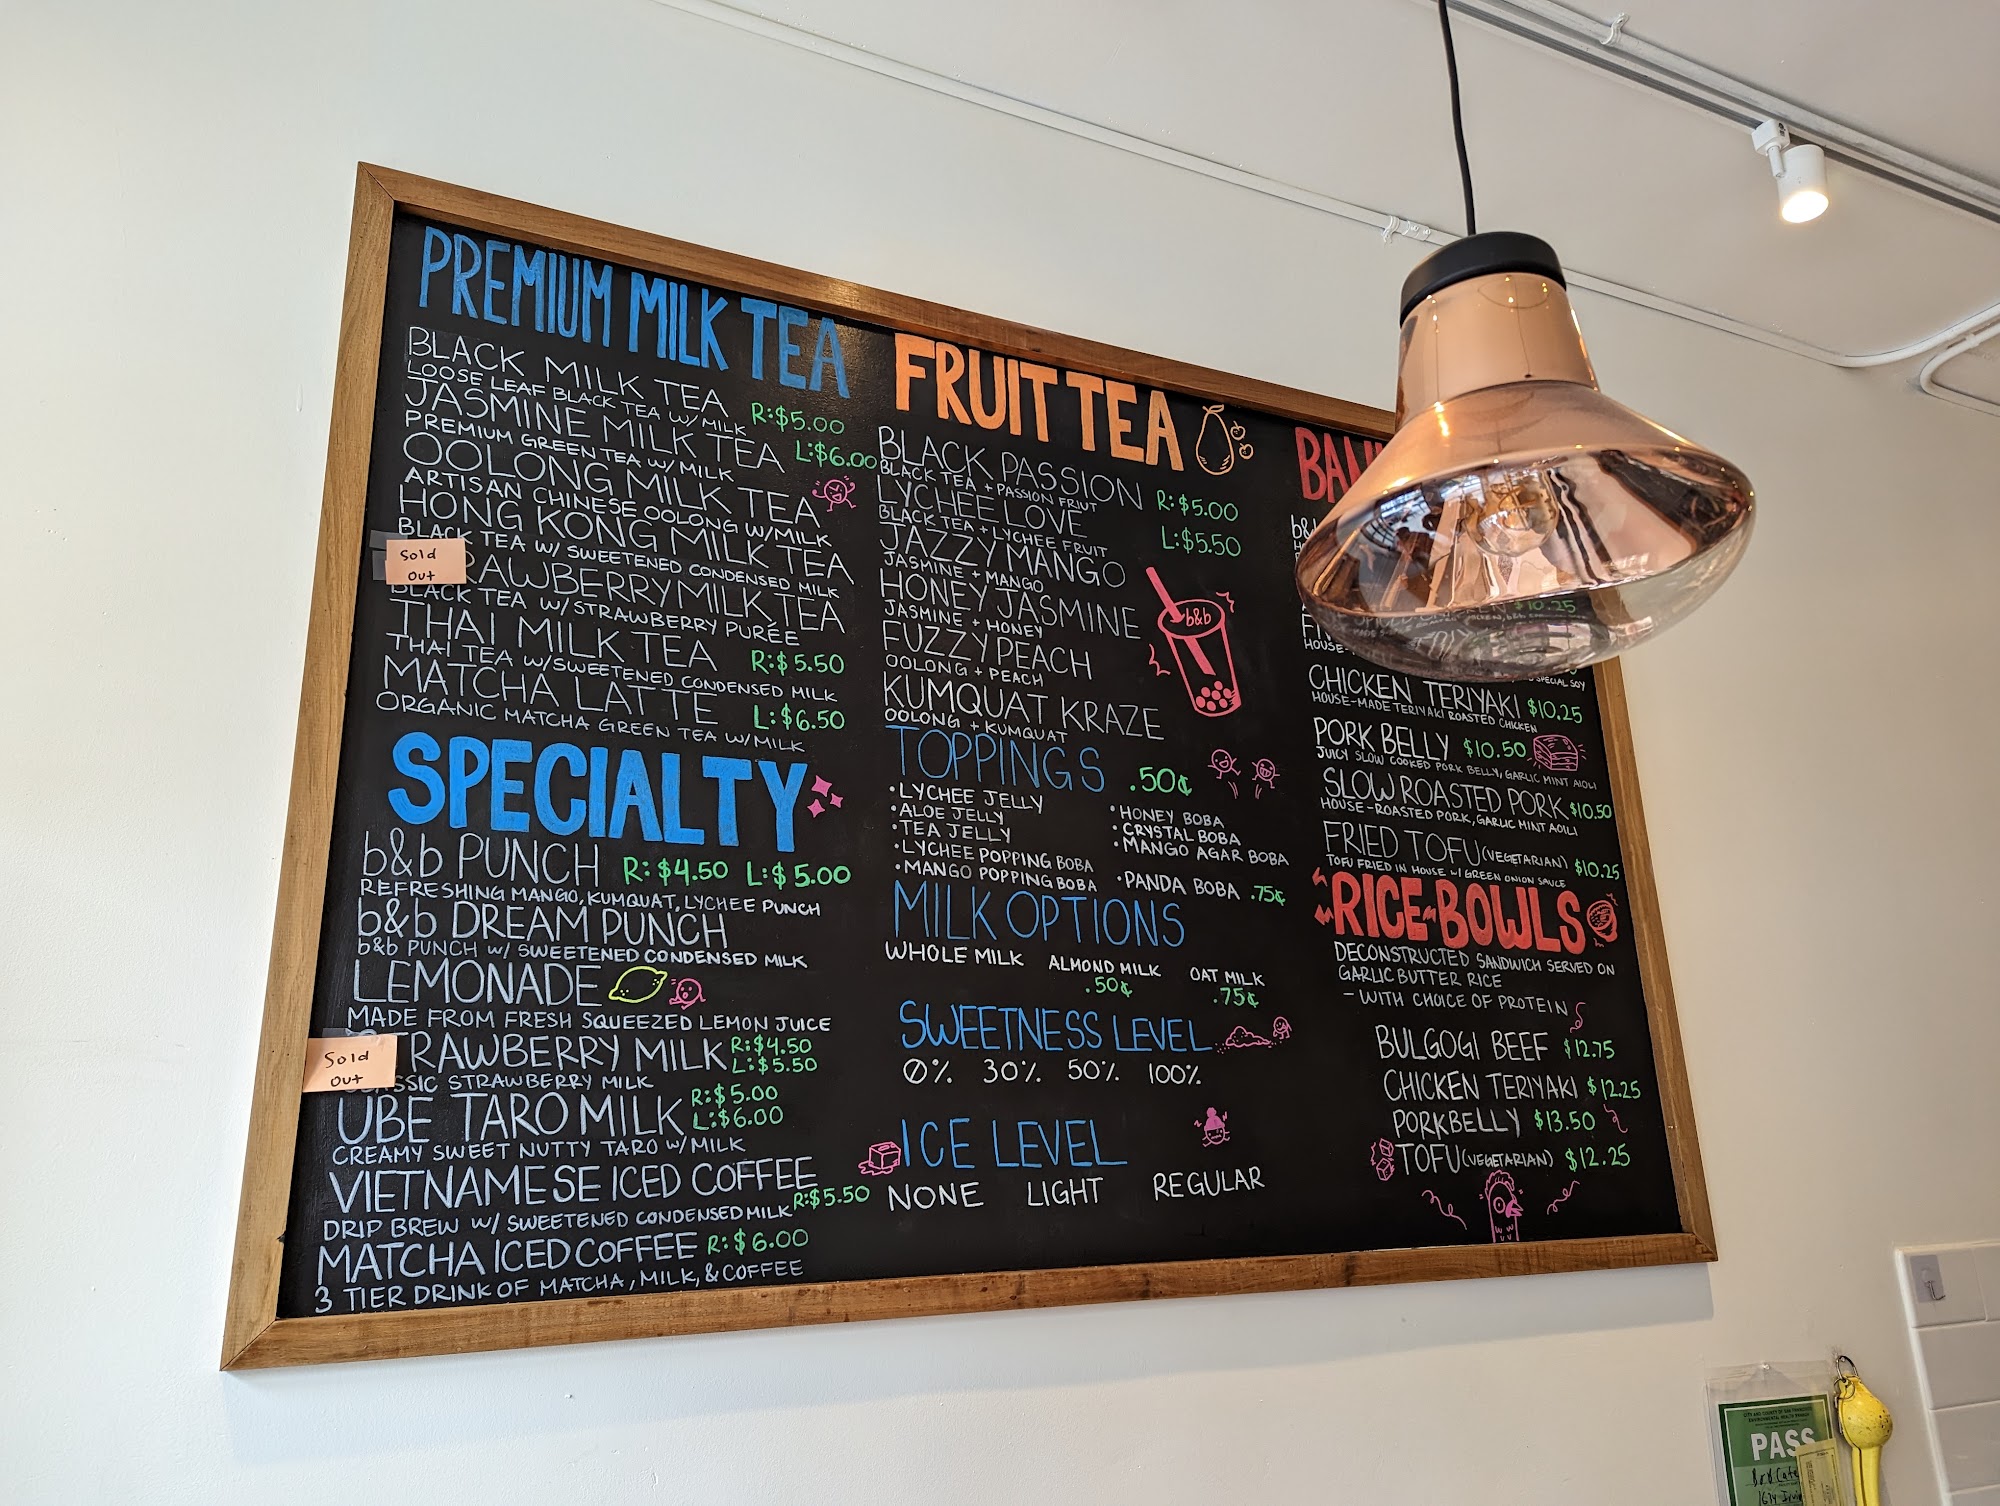 PREMIUM MILK TEA
BLACK MILK TEA
LOOSE LEAF BLACK TEA W/ MILK
R:$5.00
JASMINE MILK TEA
L:$6.00
PREMIUM GREEN TEA W/ MILK
OOLONG MILK TEA
ARTISAN CHINESE OOLONG W/MILK
HONG KONG MILK TEA
BLACK TEA W/ SWEETENED CONDENSED MILK
Sold
Out
RAWBERRY MILK TEA
BLACK TEA W/STRAWBERRY PURÉE
THAI MILK TEA R:$5.50
THAI TEA W/SWEETENED CONDENSED MILK
MATCHA LATTE L:$6.50
ORGANIC MATCHA GREEN TEA W/MILK
SPECIALTY
b&b PUNCH R:$4.50 L:$5.00
REFRESHING MANGO, KUMQUAT, LYCHEE PUNCH
b&b DREAM PUNCH
b&b PUNCH W/ SWEETENED CONDENSED MILK
LEMONADE
MADE FROM FRESH SQUEEZED LEMON JUICE
Sold
Out
TRAWBERRY MILK R:$4.50
L:$5.50
ASSIC STRAWBERRY MILK
UBE TARO MILK R:$5.00
L:$6.00
CREAMY SWEET NUTTY TARO W/MILK
VIETNAMESE ICED COFFEE
R:$5.50
DRIP BREW W/ SWEETENED CONDENSED MILK
MATCHA ICED COFFEE R:$6.00
3 TIER DRINK OF MATCHA, MILK, & COFFEE
FRUIT TEA
BLACK PASSION R:$5.00
BLACK TEA + PASSION FRIUT
LYCHEE LOVE L:$5.50
BLACK TEA + LYCHEE FRUIT
JAZZY MANGO
JASMINE + MANGO
HONEY JASMINE
JASMINE + HONEY
b&b
FUZZY PEACH
OOLONG + PEACH
KUMQUAT KRAZE
OOLONG + KUMQUAT
TOPPINGS .50¢
• LYCHEE JELLY
• ALOE JELLY
• TEA JELLY
• LYCHEE POPPING BOBA
• MANGO POPPING BOBA
• HONEY BOBA
• CRYSTAL BOBA
• MANGO AGAR BOBA
• PANDA BOBA .75¢
MILK OPTIONS
WHOLE MILK ALMOND MILK OAT MILK
.50¢ .75¢
SWEETNESS LEVEL
0% 30% 50% 100%
ICE LEVEL
NONE LIGHT REGULAR
BAN
b&
$10.25
HOUSE-
SPECIAL SOY
CHICKEN TERIYAKI $10.25
HOUSE-MADE TERIYAKI ROASTED CHICKEN
PORK BELLY $10.50
JUICY SLOW COOKED PORK BELLY, GARLIC MINT AIOLI
SLOW ROASTED PORK $10.50
HOUSE-ROASTED PORK, GARLIC MINT AOILI
FRIED TOFU (VEGETARIAN) $10.25
TOFU FRIED IN HOUSE W/ GREEN ONION SAUCE
RICE BOWLS
DECONSTRUCTED SANDWICH SERVED ON
GARLIC BUTTER RICE
- WITH CHOICE OF PROTEIN
BULGOGI BEEF $12.75
CHICKEN TERIYAKI $12.25
PORKBELLY $13.50
TOFU (VEGETARIAN) $12.25
CITY AND COUNTY OF SAN FRANCISCO
ENVIRONMENTAL HEALTH BRANCH
PASS